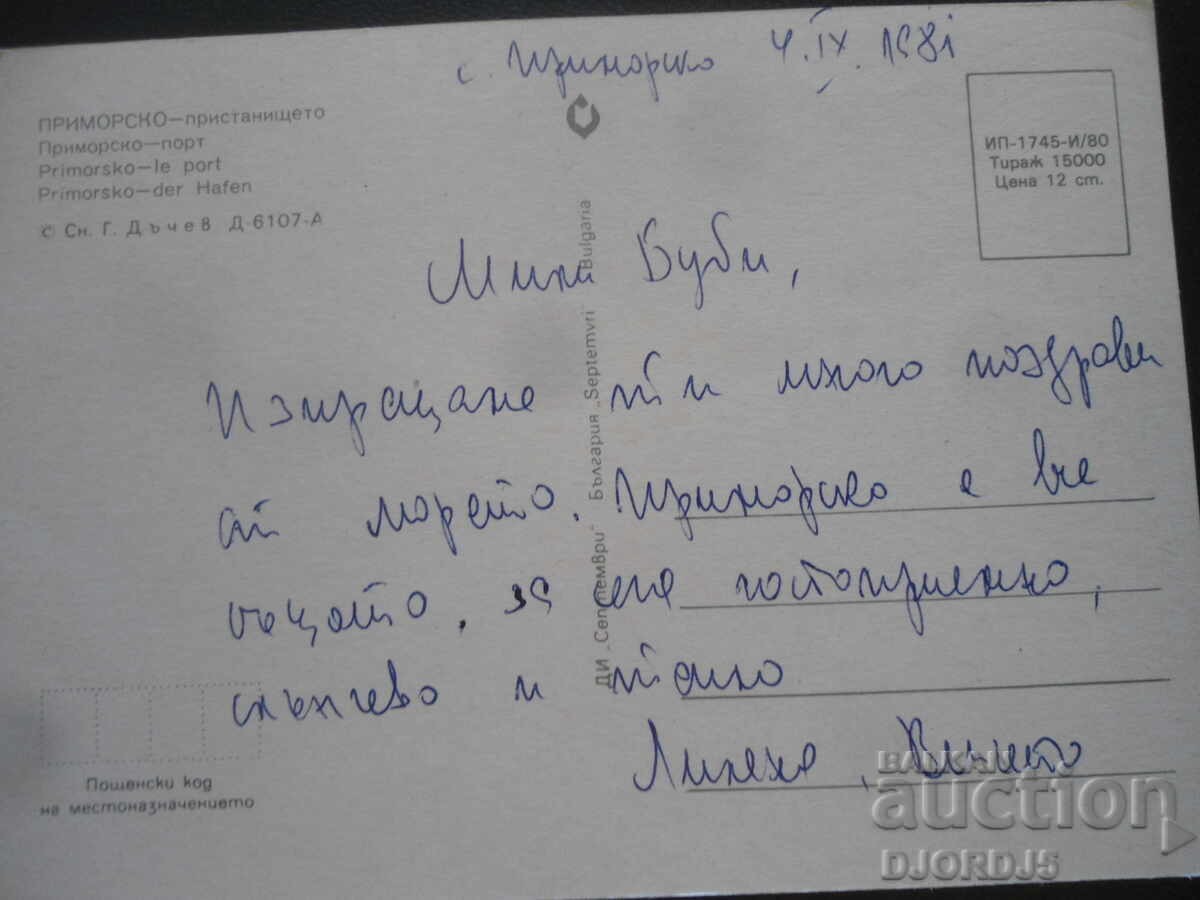 с. Приморско 4.IX.1981
ПРИМОРСКО—пристанището
Приморско—порт
Primorsko—le port
Primorsko—der Hafen
© Сн. Г. Дъчев Д-6107-А
ИП-1745-И/80
Тираж 15000
Цена 12 ст.
ДИ „Септември" България „Septemvri" Bulgaria
Мили Буби,
Изпращаме ти много поздрави
от морето. Приморско е все
същото, за сега гостоприемно,
слънчево и
Пощенски код
на местоназначението
BALKAN
auction
DJORDJ5